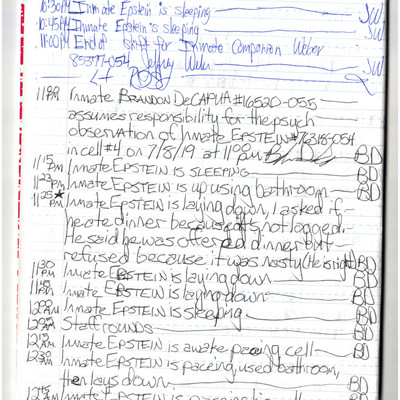 10:30PM Inmate Epstein is sleeping JW
10:45PM Inmate Epstein is sleeping JW
11:00PM End of shift for Inmate Companion Weber
85377-054 Jeffrey Weber JW
11:00PM Inmate BRANDON DeCAPUA #16520-055
assumes responsibility for the psych
observation of Inmate EPSTEIN #76318-054
in cell #4 on 7/8/19 at 11:00pm BD
11:15PM Inmate EPSTEIN is SLEEPING BD
11:23PM Inmate EPSTEIN is up using bathroom BD
11:25* Inmate EPSTEIN is laying down, I asked if
he ate dinner because it's not logged.
He said he was offered dinner but
refused because it was nasty (He is right) BD
11:30PM Inmate EPSTEIN is laying down BD
11:45PM Inmate EPSTEIN is laying down BD
12:00AM Inmate EPSTEIN is sleeping BD
Staff rounds BD
12:15AM Inmate EPSTEIN is awake pacing cell BD
12:30AM Inmate EPSTEIN is pacing, used bathroom,
then lays down. BD
12:45AM Inmate EPSTEIN is